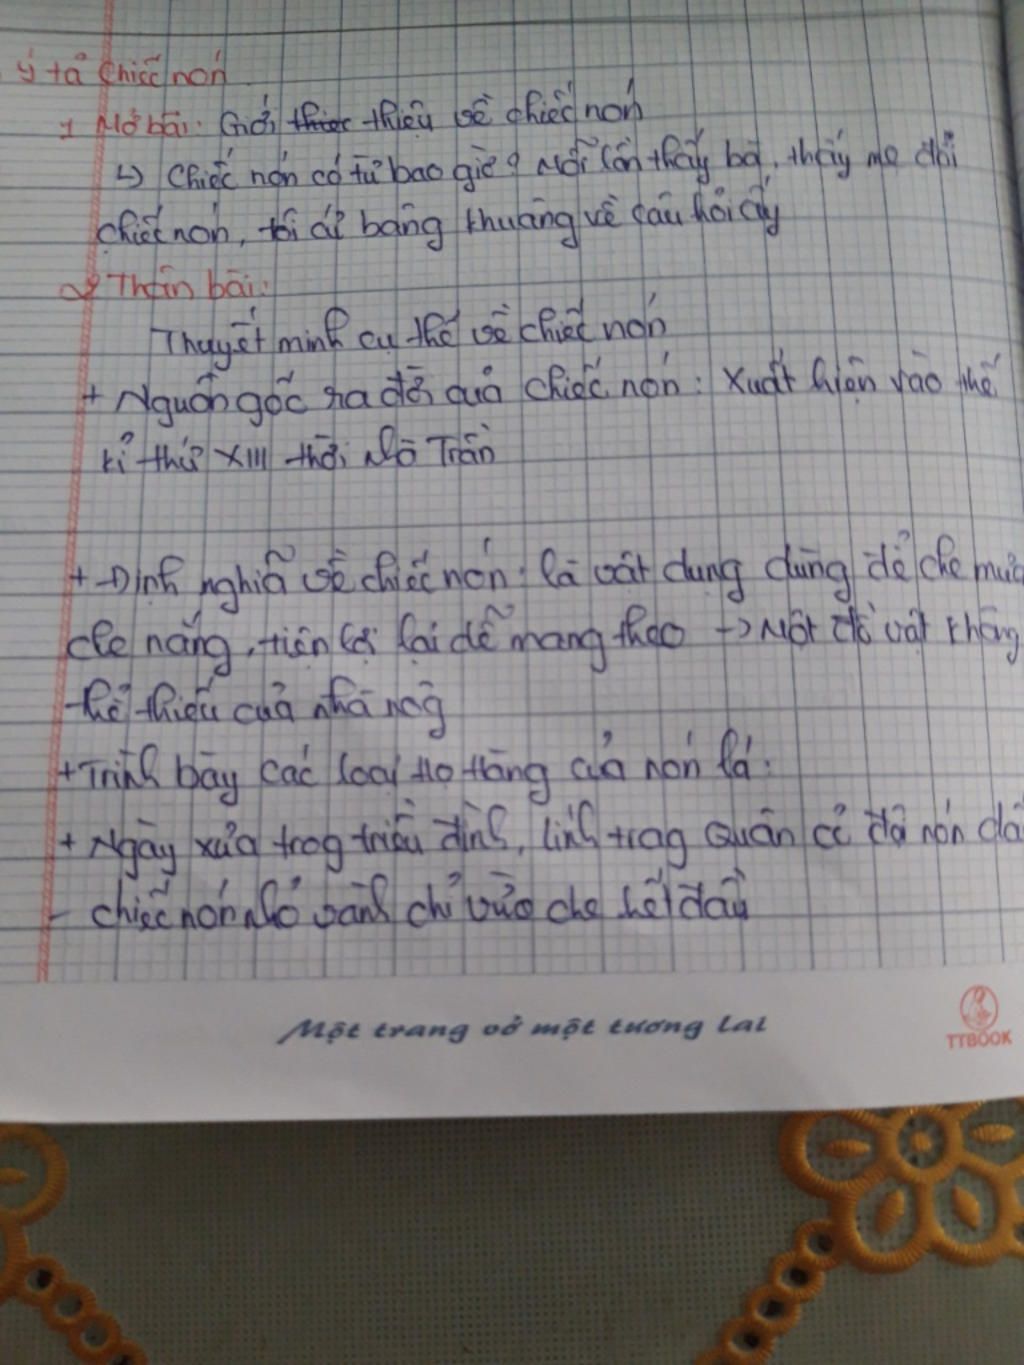 ý tả chiếc nón
1 Mở bài: Giới thiệc thiệu về chiếc nón
↳ Chiếc nón có từ bao giờ? Mỗi lần thấy bà, thấy mẹ đội
chiếc nón, tôi lại bâng khuâng về câu hỏi ấy
2 Thân bài:
Thuyết minh cụ thể về chiếc nón
+ Nguồn gốc ra đời của chiếc nón: Xuất hiện vào thế
kỉ thứ XIII thời nhà Trần
+ Định nghĩa về chiếc nón: là vật dụng dùng để che mưa
che nắng, tiện lợi lại dễ mang theo → Một đồ vật không
thể thiếu của nhà nông
+ Trình bày các loại họ hàng của nón lá:
+ Ngày xưa trog triều đình, lính trog quân có đội nón dấ
- chiếc nón nhỏ vành chỉ vừa che hết đầu
Một trang vở một tương lai
TTBOOK